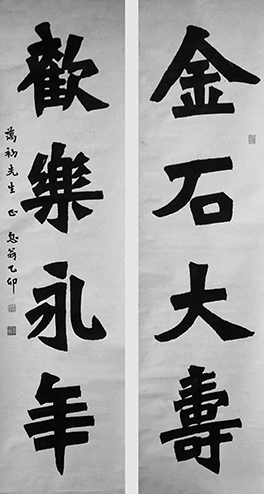 金石大壽
歡樂永年
藹初先生正 息翁乙卯